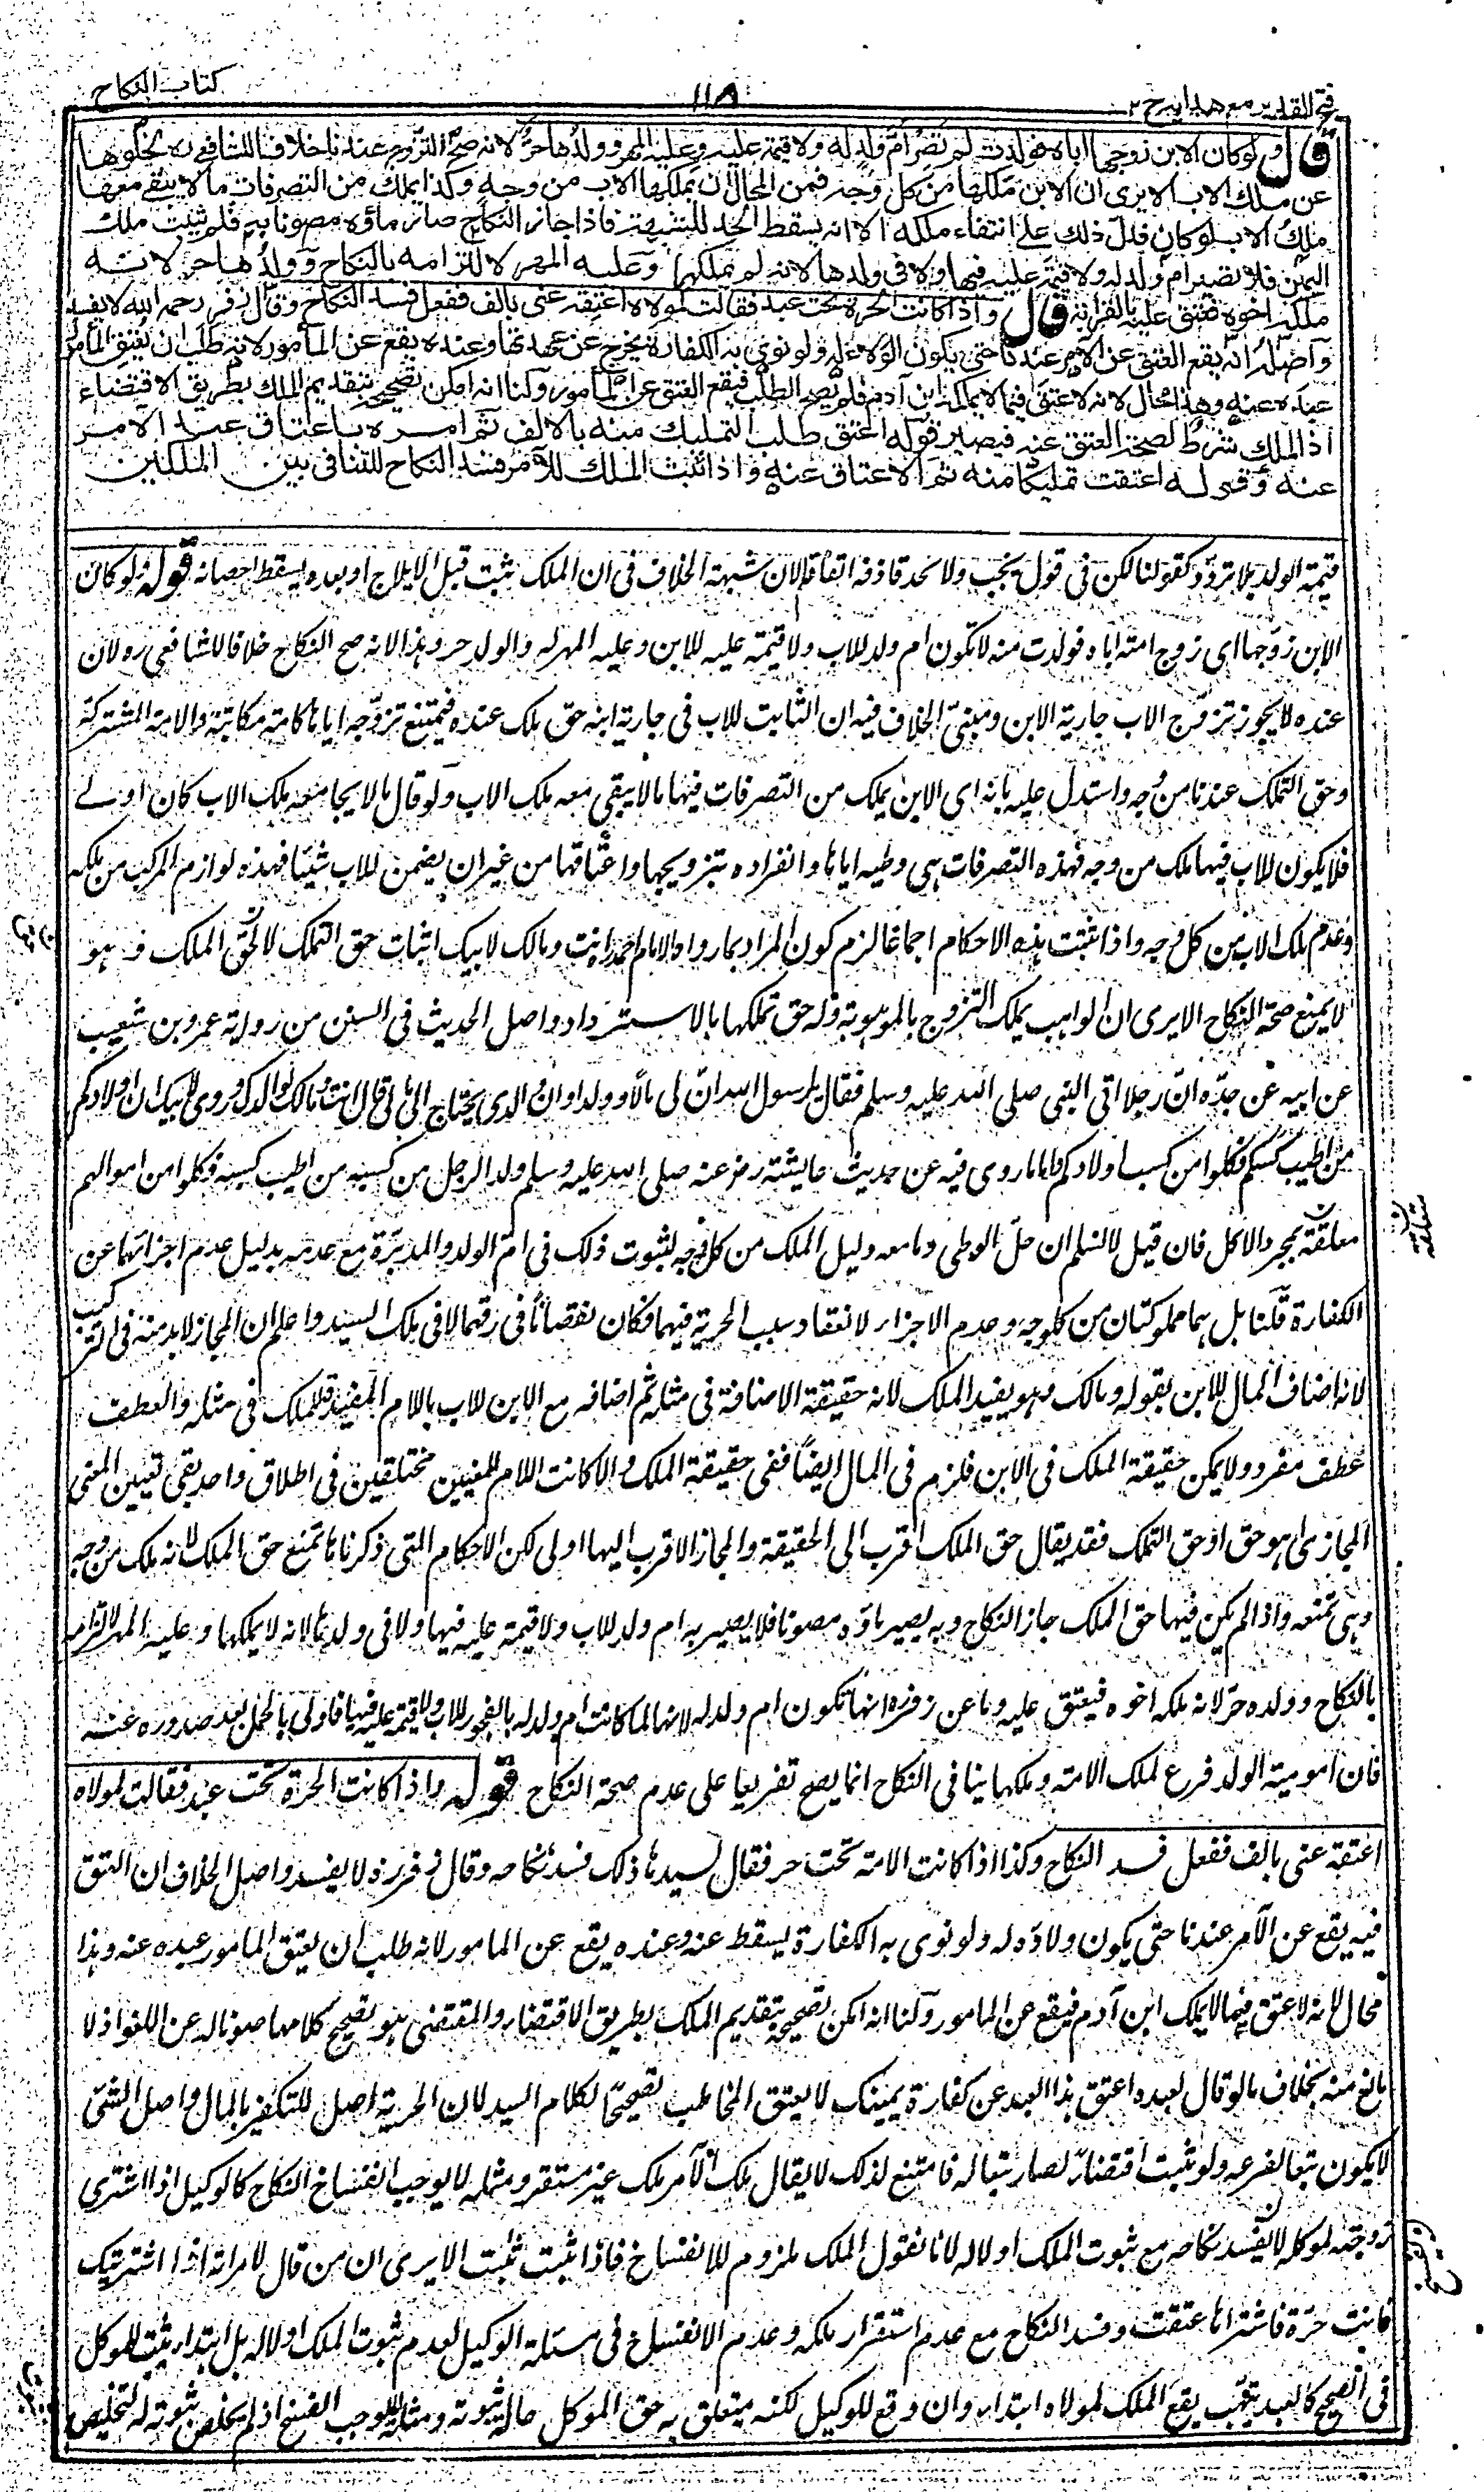 فتح القدير مع هدايه ج ٢
١١٨
كتاب النكاح
قال ولو كان الابن زوجها اباه فولدت لم تصر أم ولد له ولا قيمة عليه وعليه المهر وولدها حر لانه صح التزوج عندنا خلافا للشافعي ره لخلوها
عن ملك الاب الا يرى ان الابن ملكها من كل وجه فمن المحال أن يملكها الاب من وجه وكذا يملك من التصرفات ما لا يبقى معها
ملك الاب لو كان فدل ذلك على انتفاء ملكه الا انه يسقط الحد للشبهة فاذا جاز النكاح صار ماؤه مصونا به فلم يثبت ملك
اليمين فلا تصير ام ولد له ولا قيمة عليه فيها ولا في ولدها لانه لم يملكها وعليه المهر لالتزامه بالنكاح وولدها حر لانه
ملكه اخوه فعتق عليه بالقرابة قال واذا كانت الحرة تحت عبد فقالت لمولاه اعتقه عني بالف ففعل فسد النكاح وقال زفر رحمه الله لا يفسد
واصله انه يقع العتق عن الآمر عندنا حتى يكون الولاء له ولو نوى به الكفارة يخرج عن عهدتها وعنده يقع عن المأمور لانه طلب ان يعتق المأمور
عبده عنه وهذا محال لانه لا عتق فيما لا يملكه ابن آدم فلم يصح الطلب فيقع العتق عن المأمور ولنا انه امكن تصحيحه بتقديم الملك بطريق الاقتضاء
اذ الملك شرط لصحة العتق عنه فيصير قوله اعتق طلب التمليك منه بالالف ثم امره باعتاق عبد الآمر
عنه وقوله اعتقت تمليكا منه ثم الاعتاق عنه واذا ثبت الملك للآمر فسد النكاح للتنافي بين الملكين
قيمة الولد بلا تردد كقولنا لكن في قول يجب ولا يحد قاذفه اتفاقا لان شبهة الخلاف في ان الملك يثبت قبل الايلاج او بعده يسقط احصانه قوله ولو كان
الابن زوجها اي زوج امته اباه فولدت منه لا تكون ام ولد للاب ولا قيمة عليه للابن وعليه المهر له والولد حر وهذا لانه صح النكاح خلافا للشافعي ره لان
عنده لا يجوز تزوج الاب جارية الابن ومبنى الخلاف فيه ان الثابت للاب في جارية ابنه حق ملك عنده فيمتنع تزوجه اياها كامة مكاتبة والامة المشتركة
وحق التملك عندنا من وجه واستدل عليه بانه اي الابن يملك من التصرفات فيها ما لا يبقى معه ملك الاب ولو قال ما لا يجامعه ملك الاب كان اولے
فلا يكون للاب فيها ملك من وجه فهذه التصرفات هي وطيه اياها وانفراده بتزويجها واعتاقها من غير ان يضمن للاب شيئا فهذه لوازم المركب من ملكه
وعدم ملك الاب من كل وجه واذا ثبتت هذه الاحكام اجماعا لزم كون المراد بما رواه الامام احمد انت ومالك لابيك اثبات حق التملك لا حق الملك و هو
لا يمنع صحة النكاح الا يرى ان الواهب يملك التزوج بالموهوبة وله حق تملكها بالاسترداد واصل الحديث في السنن من رواية عمرو بن شعيب
عن ابيه عن جده ان رجلا اتى النبي صلى الله عليه وسلم فقال يا رسول الله ان لي مالا وولدا وان والدي يحتاج الى مالي قال انت ومالك لوالدك وروي لابيك ان اولادكم
من اطيب كسبكم فكلوا من كسب اولادكم فاما ما روي فيه عن حديث عايشة رض عنه صلى الله عليه وسلم ولد الرجل من كسبه من اطيب كسبه فكلوا من اموالهم
معلقة بمجرد الاكل فان قيل لا نسلم ان حل الوطى وما معه دليل الملك من كل وجه لثبوت ذلك في ام الولد والمدبرة مع عدمه بدليل عدم اجزائهما عن
الكفارة قلنا بل هما مملوكتان من كل وجه وعدم الاجزاء لانعقاد سبب الحرية فيهما فكان نقصانا في رقهما لا في ملك السيد واعلم ان المجاز لا بد منه في التركيب
لانه اضاف المال للابن بقوله ومالك وهو يفيد الملك لانه حقيقة الاضافة في مثله ثم اضافه مع الابن للاب باللام المفيدة للملك في مثله والعطف
عطف مفرد ولا يمكن حقيقة الملك في الابن فلزم في المال ايضا نفي حقيقة الملك والا كانت اللام للمعنيين مختلفين في اطلاق واحد بقي تعيين المعنى
المجازي اهو حق او حق التملك فقد يقال حق الملك اقرب الى الحقيقة والمجاز الاقرب اليها اولى لكن الاحكام التي ذكرناها تمنع حق الملك لانه ملك من وجه
وهي تمنعه واذا لم يكن فيها حق الملك جاز النكاح وبه يصير ماؤه مصونا فلا يصير به ام ولد للاب ولا قيمة عليه فيها ولا في ولدها لانه لا يملكها وعليه المهر لالتزامه
بالنكاح وولده حر لانه ملكه اخوه فيعتق عليه وما عن زفر ره انها تكون ام ولد له لانها لما كانت ام ولد له بالفجور للاب ولا قيمة عليه فيها فاولى بالحمل بعد صدوره عنه
فان امومية الولد فرع لملك الامة وملكها ينافي النكاح انما يصح تفريعا على عدم صحة النكاح قوله واذا كانت الحرة تحت عبد فقالت لمولاه
اعتقه عني بالف ففعل فسد النكاح وكذا اذا كانت الامة تحت حر فقال لسيدها ذلك فسد نكاحه وقال زفر ره لا يفسد واصل الخلاف ان العتق
فيه يقع عن الآمر عندنا حتى يكون ولاؤه له ولو نوى به الكفارة يسقط عنه وعنده يقع عن المامور لانه طلب ان يعتق المامور عبده عنه وهذا
محال لانه لا عتق فيما لا يملك ابن آدم فيقع عن المامور ولنا انه امكن تصحيحه بتقديم الملك بطريق الاقتضاء والمقتضى هو تصحيح كلامهما صونا له عن اللغو اذ لا
مانع منه بخلاف ما لو قال لعبده اعتق هذا العبد عن كفارة يمينك لا يعتق المخاطب تصحيحا لكلام السيد لان الحرية اصل للتكفير بالمال واصل الشئ
لا يكون تبعا لفرعه ولو ثبت اقتضاء لصار تبعا له فامتنع لذلك لا يقال ملك الآمر ملك غير مستقر ومثله لا يوجب انفساخ النكاح كالوكيل اذا اشترى
زوجته لموكله لا يفسد نكاحه مع ثبوت الملك اولا له لانا نقول الملك ملزوم للانفساخ فاذا ثبت ثبت الا يرى ان من قال لامراته اذا اشتريتك
فانت حرة فاشتراها عتقت وفسد النكاح مع عدم استقرار ملكه وعدم الانفساخ في مسئلة الوكيل لعدم ثبوت الملك اولا له بل ابتداء يثبت للموكل
في الصحيح كالعبد يتهب يقع الملك لمولاه ابتداء وان وقع للوكيل لكنه متعلق به حق الموكل حال ثبوته ومثله لا يوجب الفسخ اذ لم يخلص ثبوته له لتخليص